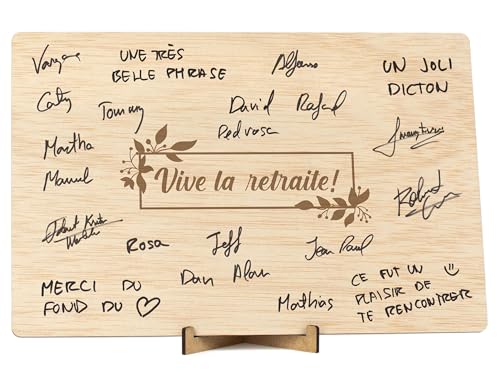 UNE TRÈS
BELLE PHRASE
Alfonso
UN JOLI
DICTON
Cathy
Tommy
David
Rafael
Pedrosa
Martha
Manuel
Vive la retraite!
Roland
Rosa
Jeff
Jean Paul
Dan
Alan
MERCI DU
FOND DU ♡
Mathias
CE FUT UN
PLAISIR DE
TE RENCONTRER